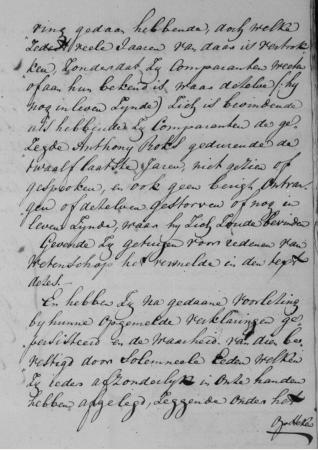 ring gedaan hebbende, doch welke
zedert veele Jaaren van daar is vertrok
ken, zonder dat zy Comparanten weeten
of aan hun bekend is, waar dezelve (: by
nog in leven zynde) zich is bevindende
als hebbende zy Comparanten de ge-
zegde Anthony Roks gedurende de
twaalf laatste Jaren, niet gezien of
gesproken, en ook geen berigt ontvan
gen of dezelven gestorven of nog in
leven zynde, waar hy zich zoude bevinden
Gevende zy getuigen voor redenen van
wetenschap het vermelde in den text
dezes.
En hebben zy na gedaane voorlezing
by hunne opgemelde verklaringen ge
persisteerd en de waarheid van dien be
vestigd door Solemneele Eeden welken
zy ieder afzonderlyk in Onze handen
hebben afgelegd, zeggende onder het